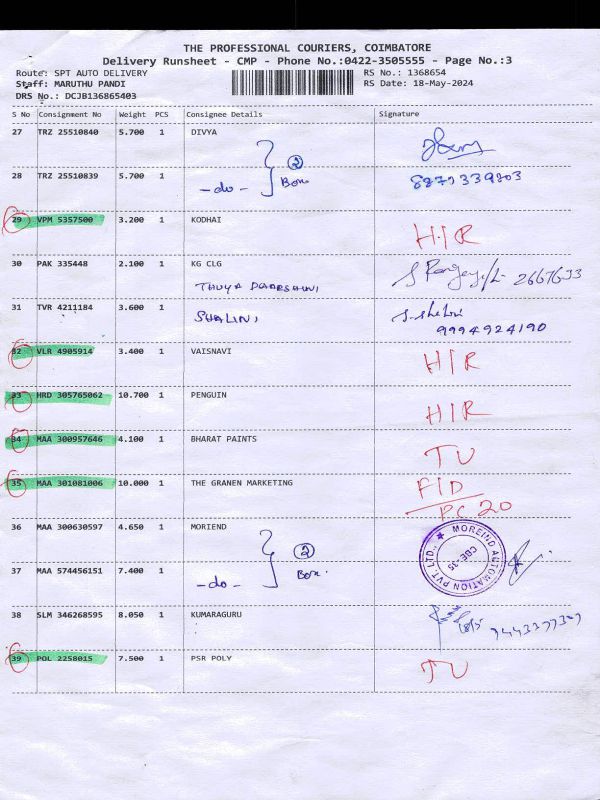 THE PROFESSIONAL COURIERS, COIMBATORE
Delivery Runsheet - CMP - Phone No.:0422-3505555 - Page No.:3
Route: SPT AUTO DELIVERY RS No.: 1368654
Staff: MARUTHU PANDI RS Date: 18-May-2024
DRS No.: DCJB136865403
S No Consignment No Weight PCS Consignee Details Signature
27 TRZ 25510840 5.700 1 DIVYA
2
28 TRZ 25510839 5.700 1 -do- Box 8870339803
29 VPM 5357500 3.200 1 KODHAI H/R
30 PAK 335448 2.100 1 KG CLG
THUYA DDARSHINI 2667633
31 TVR 4211184 3.600 1 SHALINI
9994924190
32 VLR 4905914 3.400 1 VAISNAVI H/R
33 HRD 305765062 10.700 1 PENGUIN H/R
34 MAA 300957646 4.100 1 BHARAT PAINTS TU
35 MAA 301081006 10.000 1 THE GRANEN MARKETING F/D
PC 20
36 MAA 300630597 4.650 1 MORIEND
2
MOREIND AUTOMATION PVT. LTD., ★
CBE-35
37 MAA 574456151 7.400 1 -do- Box
38 SLM 346268595 8.050 1 KUMARAGURU
39 POL 2258015 7.500 1 PSR POLY TU